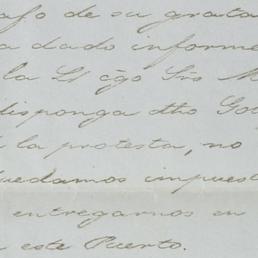 afo de su grata
a dado informe
la Ll cgo Srs M
disponga dho Go
la protesta, no
quedamos impuest
entregarnos en
este Puerto.